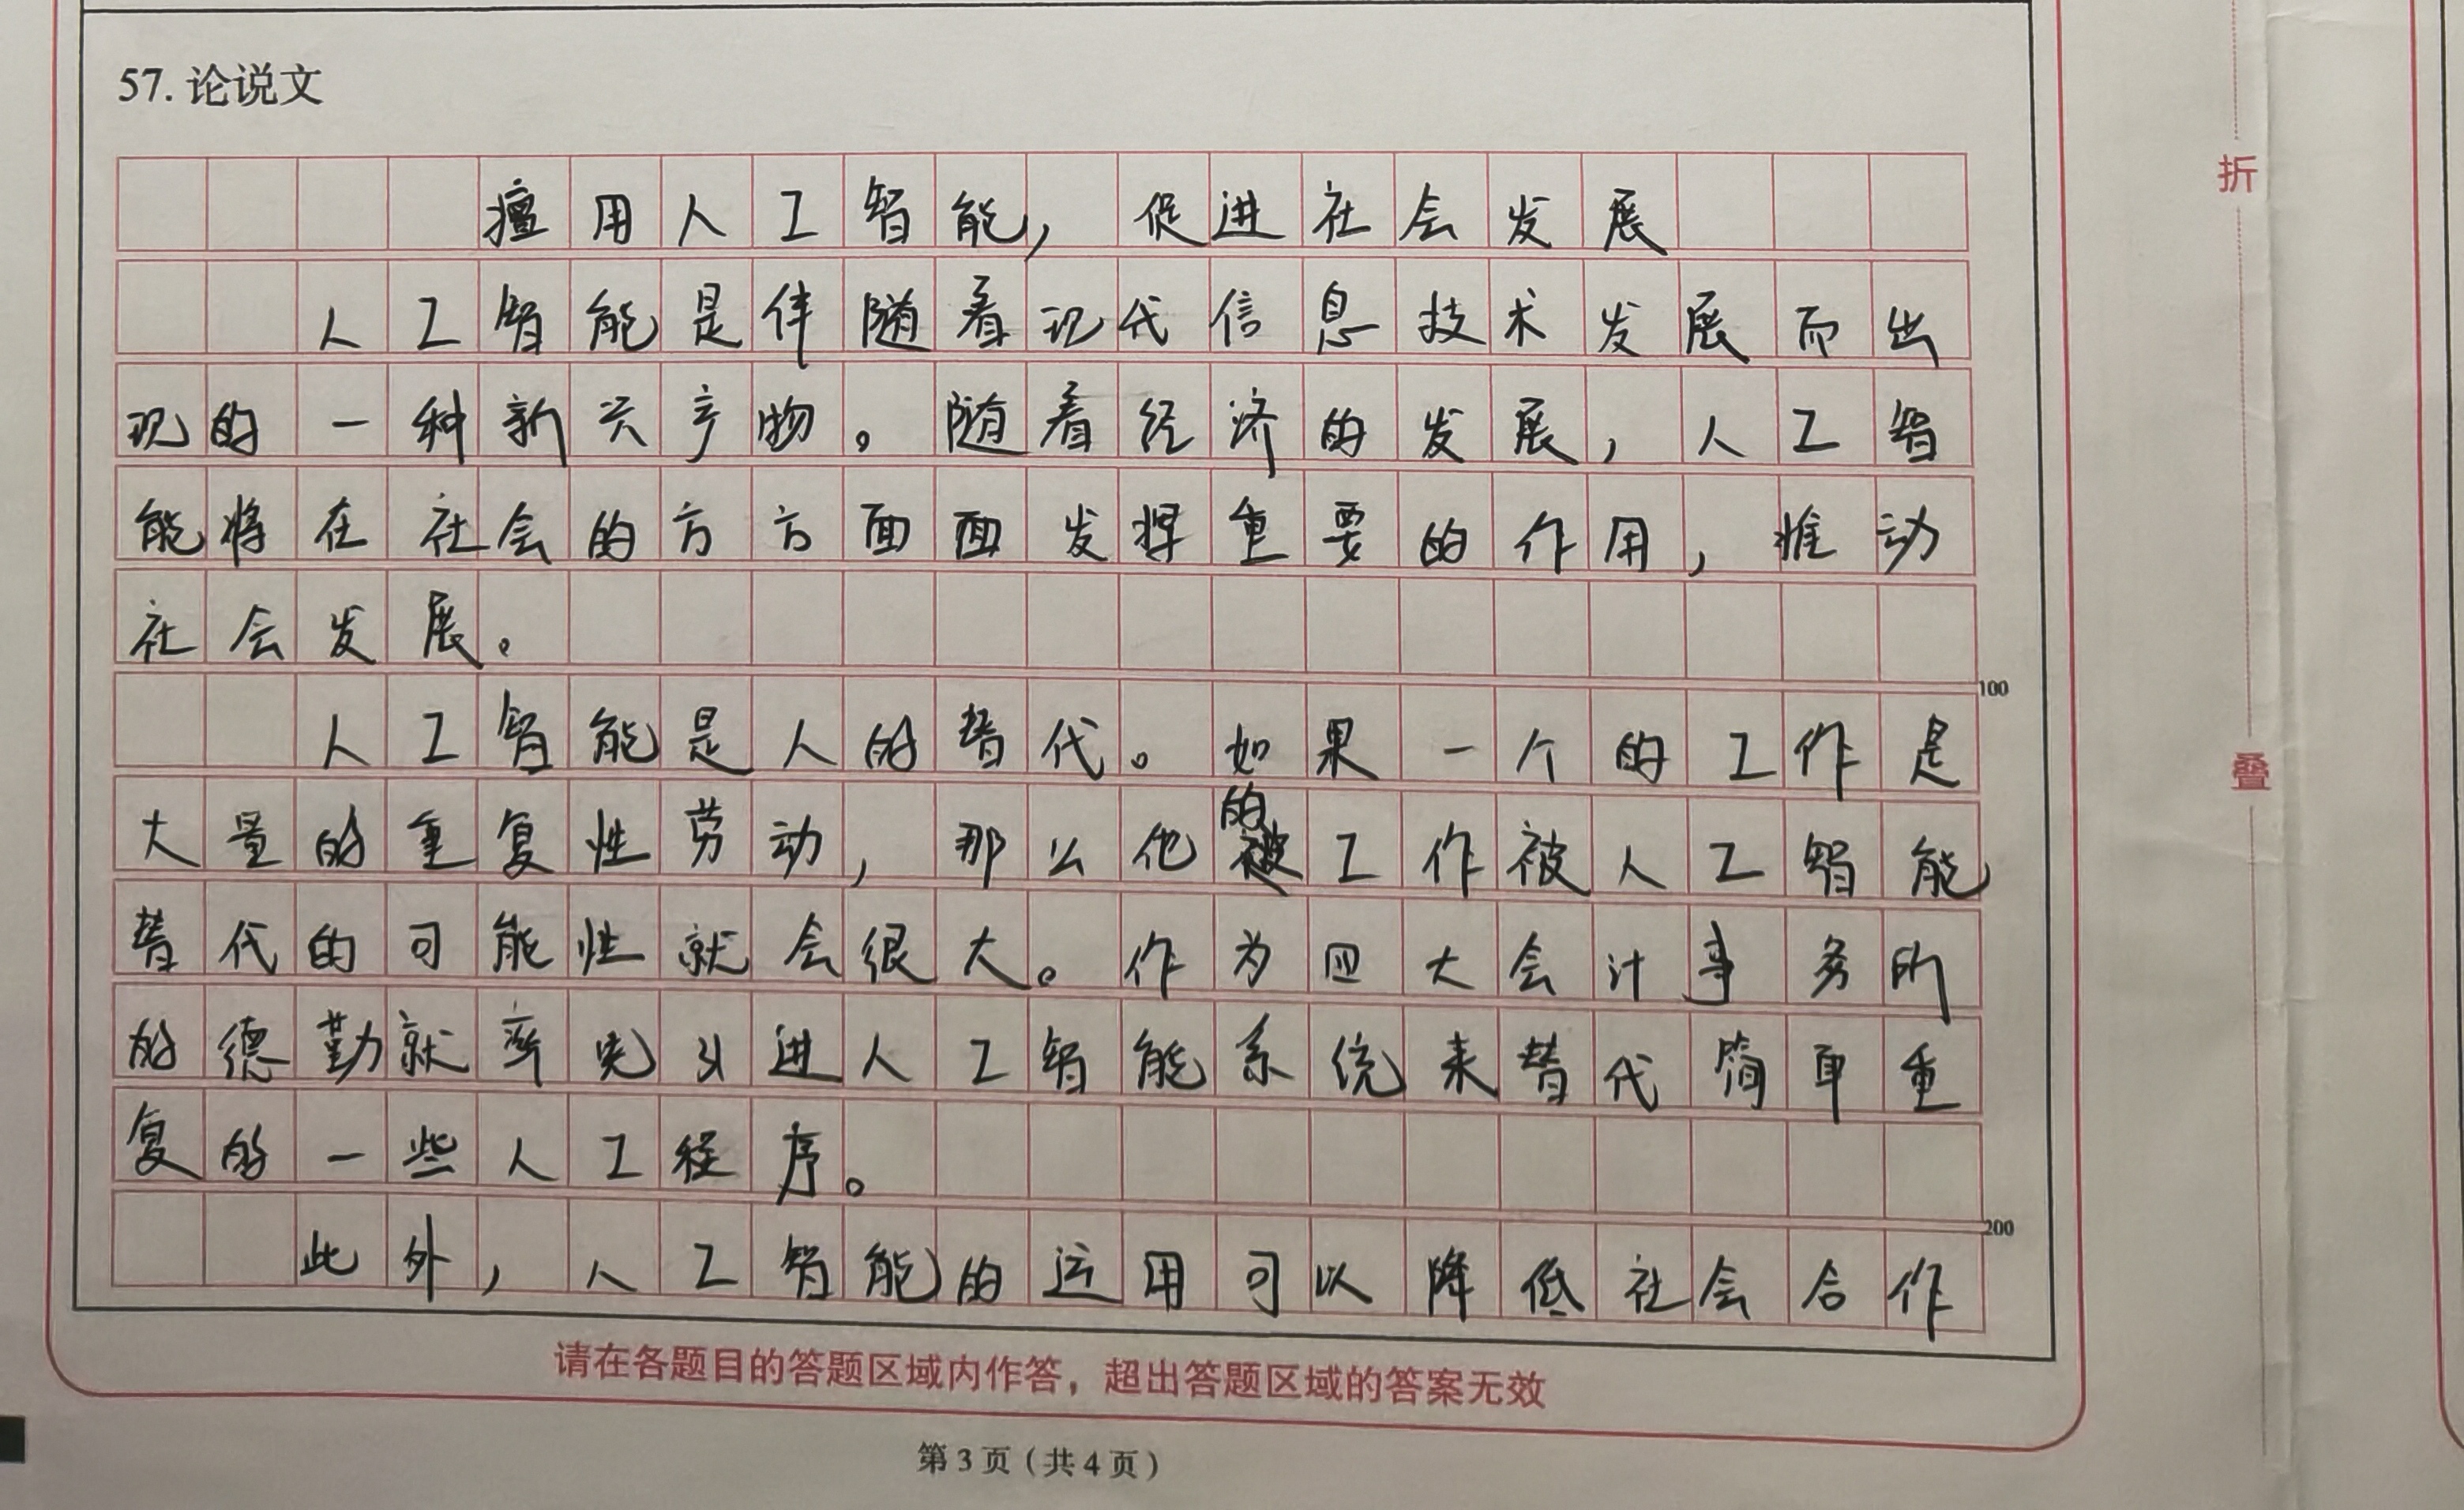 57. 论说文
擅用人工智能，促进社会发展
人工智能是伴随着现代信息技术发展而出
现的一种新兴产物。随着经济的发展，人工智
能将在社会的方方面面发挥重要的作用，推动
社会发展。
100
人工智能是人的替代。如果一个的工作是
大量的重复性劳动，那么他的工作被人工智能
替代的可能性就会很大。作为四大会计事务所
的德勤就率先引进人工智能系统来替代简单重
复的一些人工程序。
200
此外，人工智能的运用可以降低社会合作
请在各题目的答题区域内作答，超出答题区域的答案无效
第3页（共4页）
折
叠